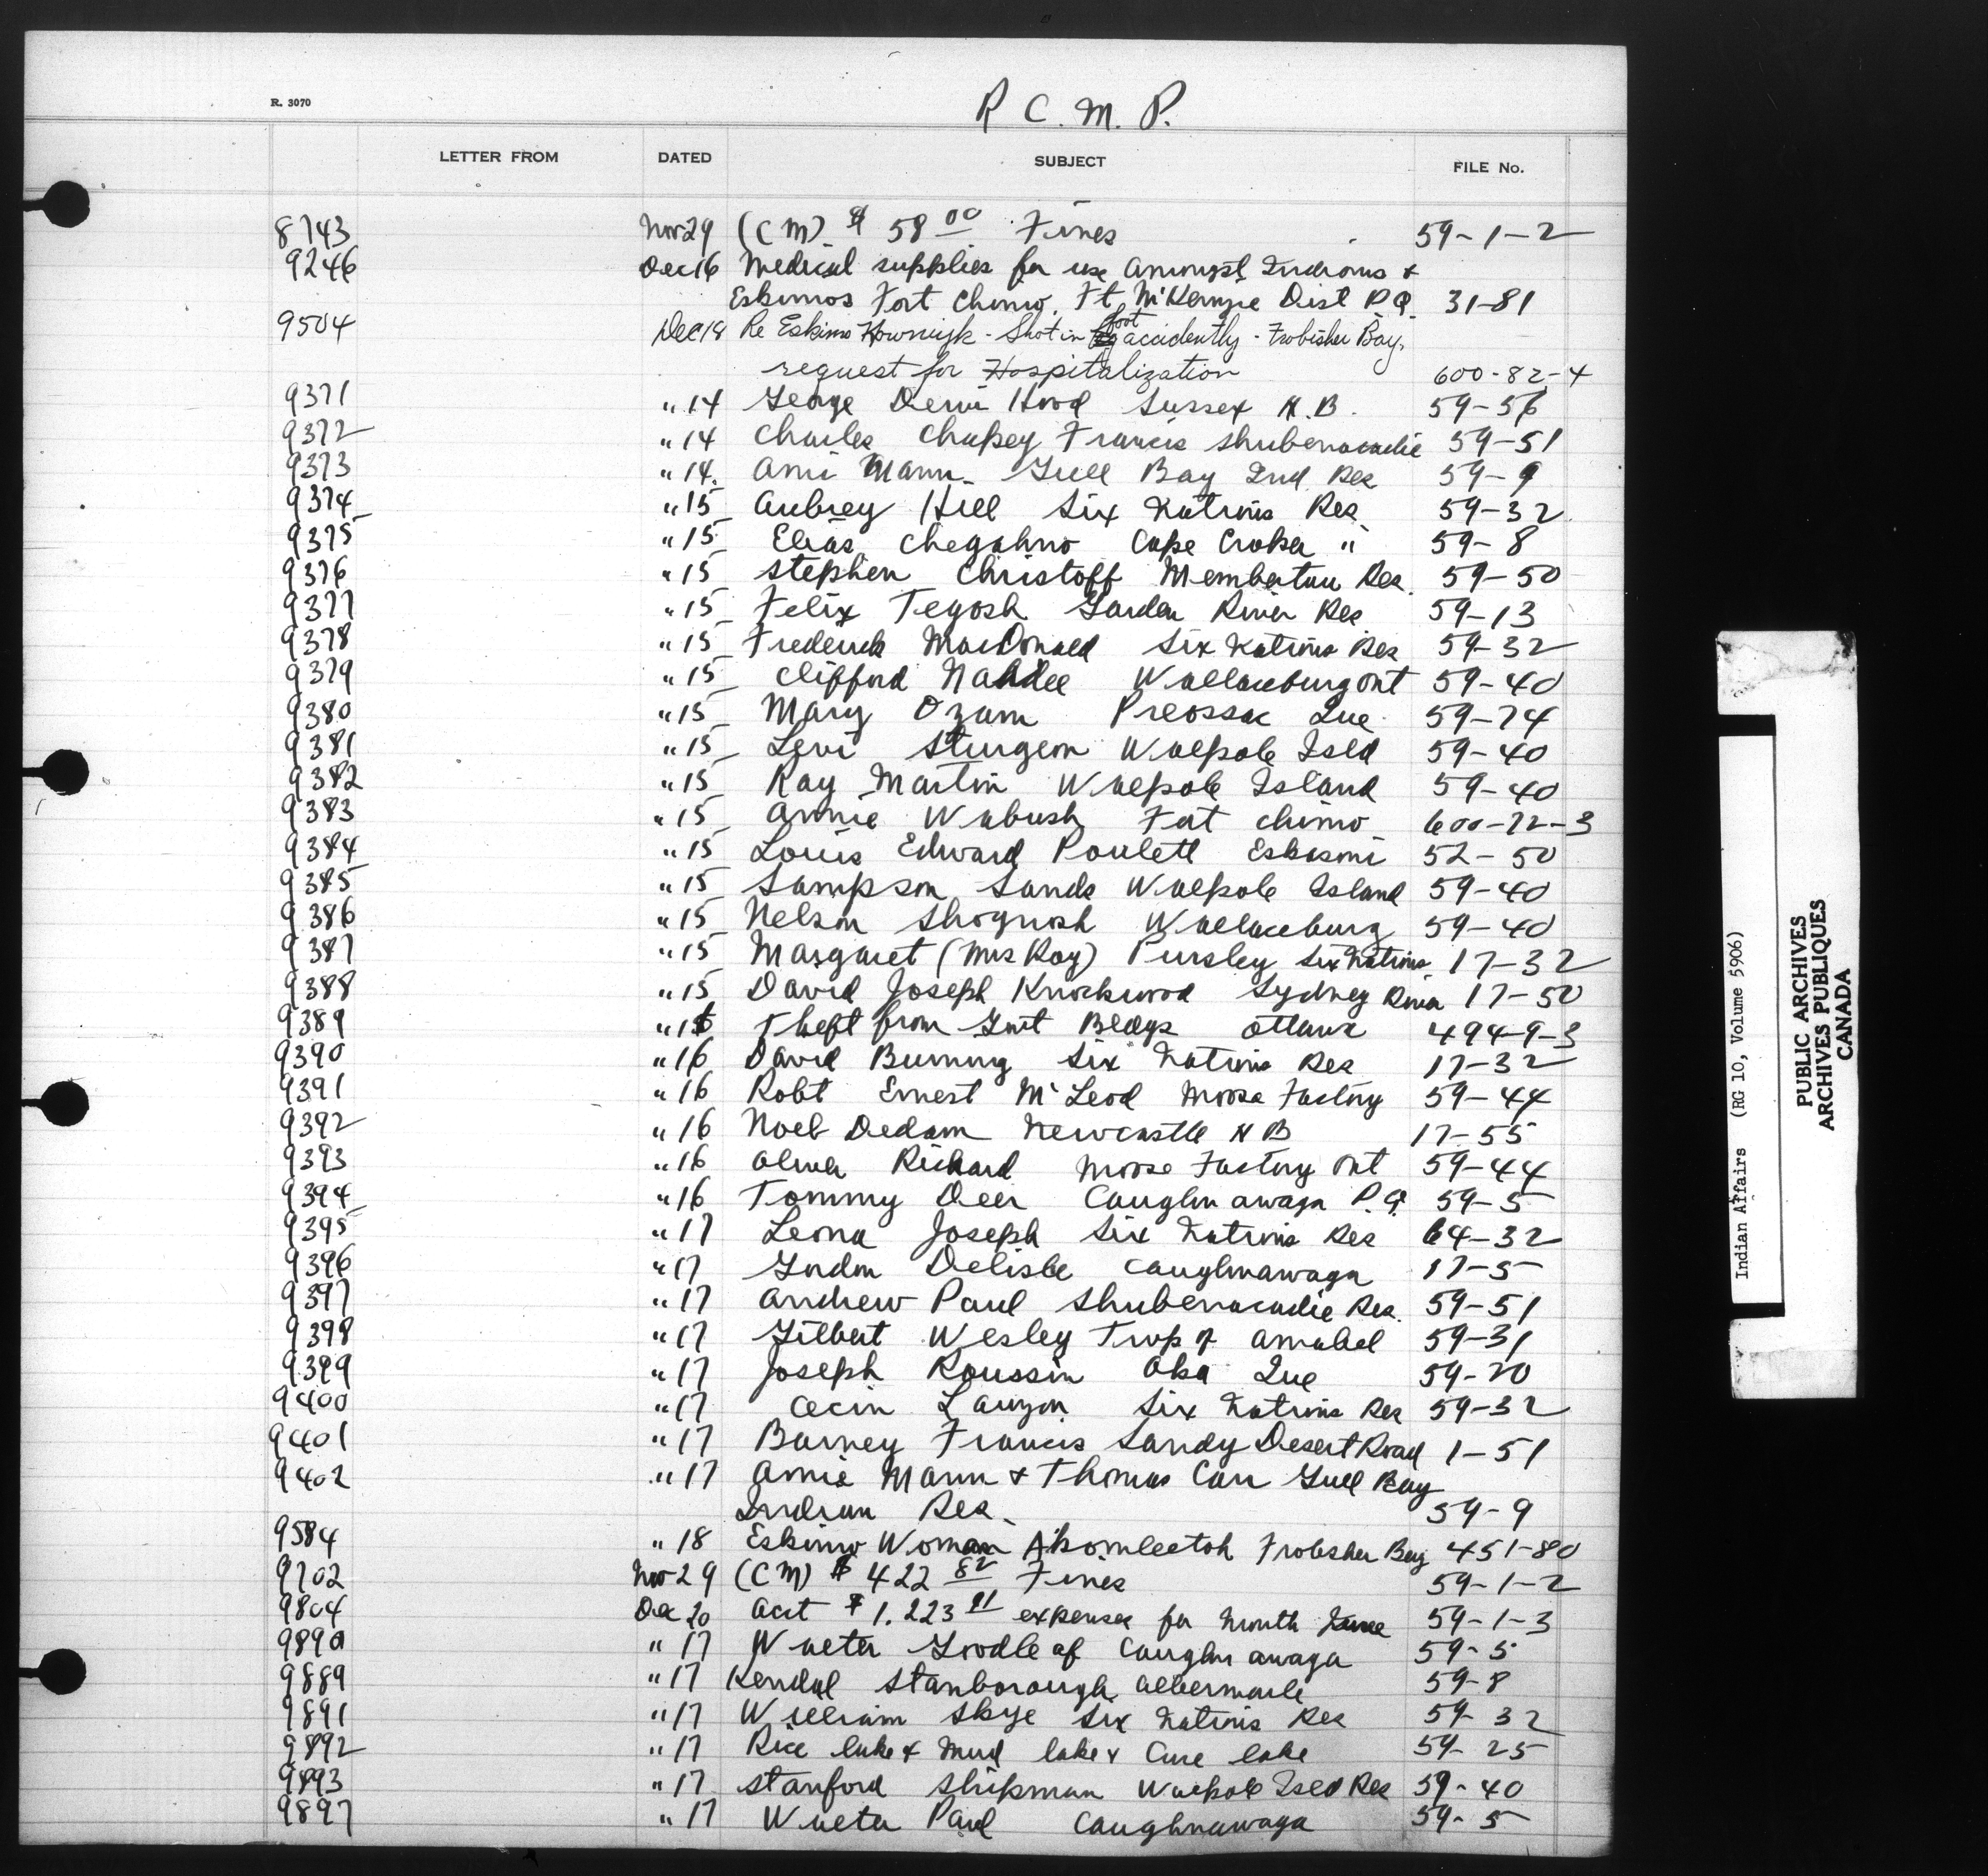 R. 3070
R C. M. P.
LETTER FROM DATED SUBJECT FILE No.
8743 Nov 29 (CM) $ 58 00 Fines 59-1-2
9246 Dec 16 Medical supplies for use amongst Indians &
Eskimos Fort Chimo, Ft McKenzie Dist P.Q. 31-81
9504 Dec 18 Re Eskimo - Shot in foot accidently - Frobisher Bay,
request for Hospitalization 600-82-4
9371 " 14 George Hood Sussex N.B. 59-56
9372 " 14 Charles Chapsey Francis Shubenacadie 59-51
9373 " 14. Ami Mann Gull Bay Ind Res 59-9
9374 " 15 Aubrey Hill Six Nations Res 59-32
9375 " 15 Elias Chegahno Cape Croker " 59-8
9376 " 15 Stephen Christoff Membertou Res. 59-50
9377 " 15 Felix Tegosh Garden River Res 59-13
9378 " 15 Frederick MacDonald Six Nations Res 59-32
9379 " 15 Clifford Nahdee Wallaceburg Ont 59-40
9380 " 15 Mary Ozam Preossac Que 59-74
9381 " 15 Levi Sturgeon Walpole Isld 59-40
9382 " 15 Ray Martin Walpole Island 59-40
9383 " 15 Annie Wabush Fort Chimo 600-72-3
9384 " 15 Louis Edward Poulett Eskasoni 52-50
9385 " 15 Sampson Sands Walpole Island 59-40
9386 " 15 Nelson Shognosh Wallaceburg 59-40
9387 " 15 Margaret (Mrs Roy) Pursley Six Nations 17-32
9388 " 15 David Joseph Knockwood Sydney River 17-50
9389 " 15 Theft from Gmt Bldgs Ottawa 494-9-3
9390 " 16 David Bumning Six Nations Res 17-32
9391 " 16 Robt Ernest McLeod Moose Factory 59-44
9392 " 16 Noel Dedam Newcastle N B 17-55
9393 " 16 Oliver Richard Moose Factory Ont 59-44
9394 " 16 Tommy Deer Caughnawaga P.Q. 59-5
9395 " 17 Leona Joseph Six Nations Res 64-32
9396 " 17 Gordon Delisle Caughnawaga 17-5
9397 " 17 Andrew Paul Shubenacadie Res. 59-51
9398 " 17 Gilbert Wesley Twp of Amabel 59-31
9399 " 17 Joseph Roussin Oka Que 59-20
9400 " 17 Lauzon Six Nations Res 59-32
9401 " 17 Barney Francis Sandy Desert Road 1-51
9402 " 17 Amie Mann & Thomas Carr Gull Bay
Indian Res. 59-9
9584 " 18 Eskimo Woman Akomleetoh Frobisher Bay 451-80
9702 Nov 29 (CM) $ 422 82 Fines 59-1-2
9804 Dec 20 Acct $ 1.223 91 expenses for month June 59-1-3
9890 " 17 Walter Goodleaf Caughnawaga 59-5
9889 " 17 Kendal Stanborough Albermarle 59-8
9891 " 17 William Skye Six Nations Res 59-32
9892 " 17 Rice lake & Mud lake & lake 59-25
9893 " 17 Stanford Shipman Walpole Isld Res 59-40
9897 " 17 Walter Paul Caughnawaga 59-5
Indian Affairs (RG 10, Volume 5906)
PUBLIC ARCHIVES
ARCHIVES PUBLIQUES
CANADA